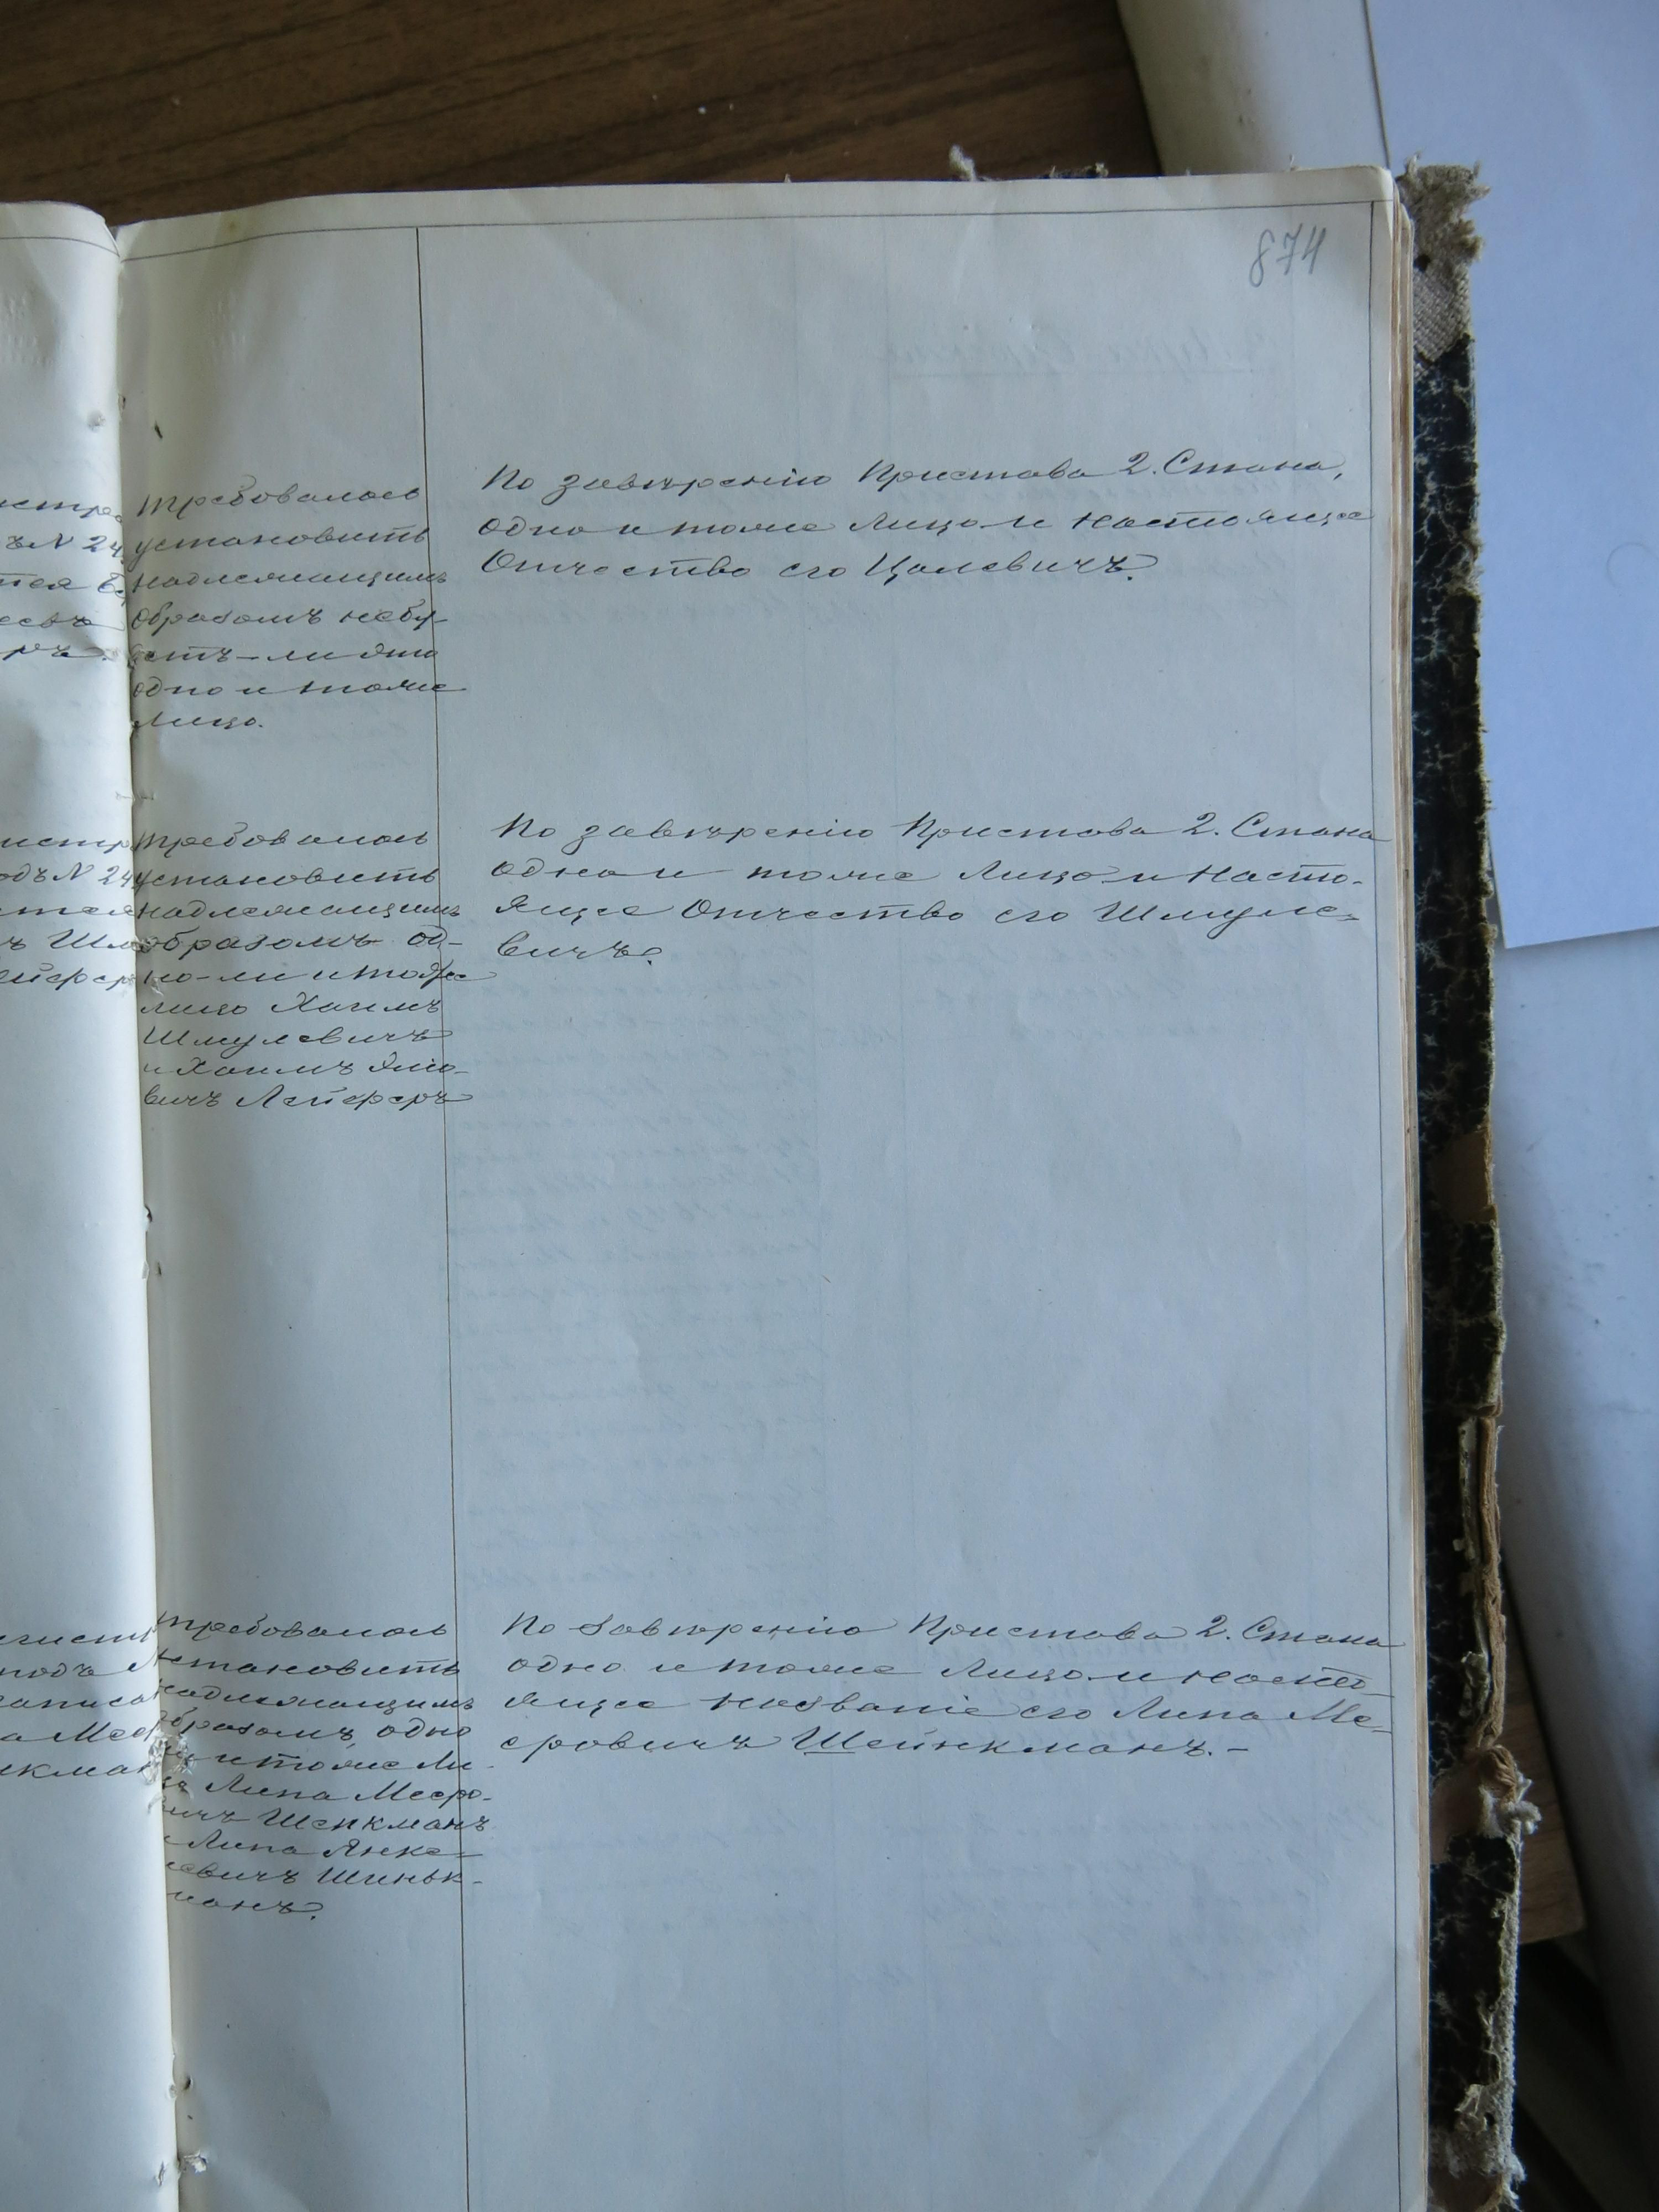 874
требовалось
установить
надлежащимъ
образомъ не бу-
детъ-ли это
одно и тоже
лицо.
По завѣренію Пристава 2. Стана,
одно и тоже лицо и настоящее
Отчество его Цалевичъ.
требовалось
установить
надлежащимъ
образомъ од-
но-ли и тоже
лицо Хаимъ
Шмулевичъ
и Хаимъ
вичъ Лейферъ
По завѣренію Пристава 2. Стана
одно и тоже лицо и насто-
ящее Отчество его Шмуле-
вичъ.
требовалось
установить
надлежащимъ
образомъ, одно
ли и тоже ли-
цо Липа Мееро-
вичъ Шенкманъ
и Липа Янке-
левичъ Шиньк-
манъ.
По завѣренію Пристава 2. Стана
одно и тоже лицо и насто-
ящее названіе его Липа Ме-
еровичъ Шейнкманъ.-